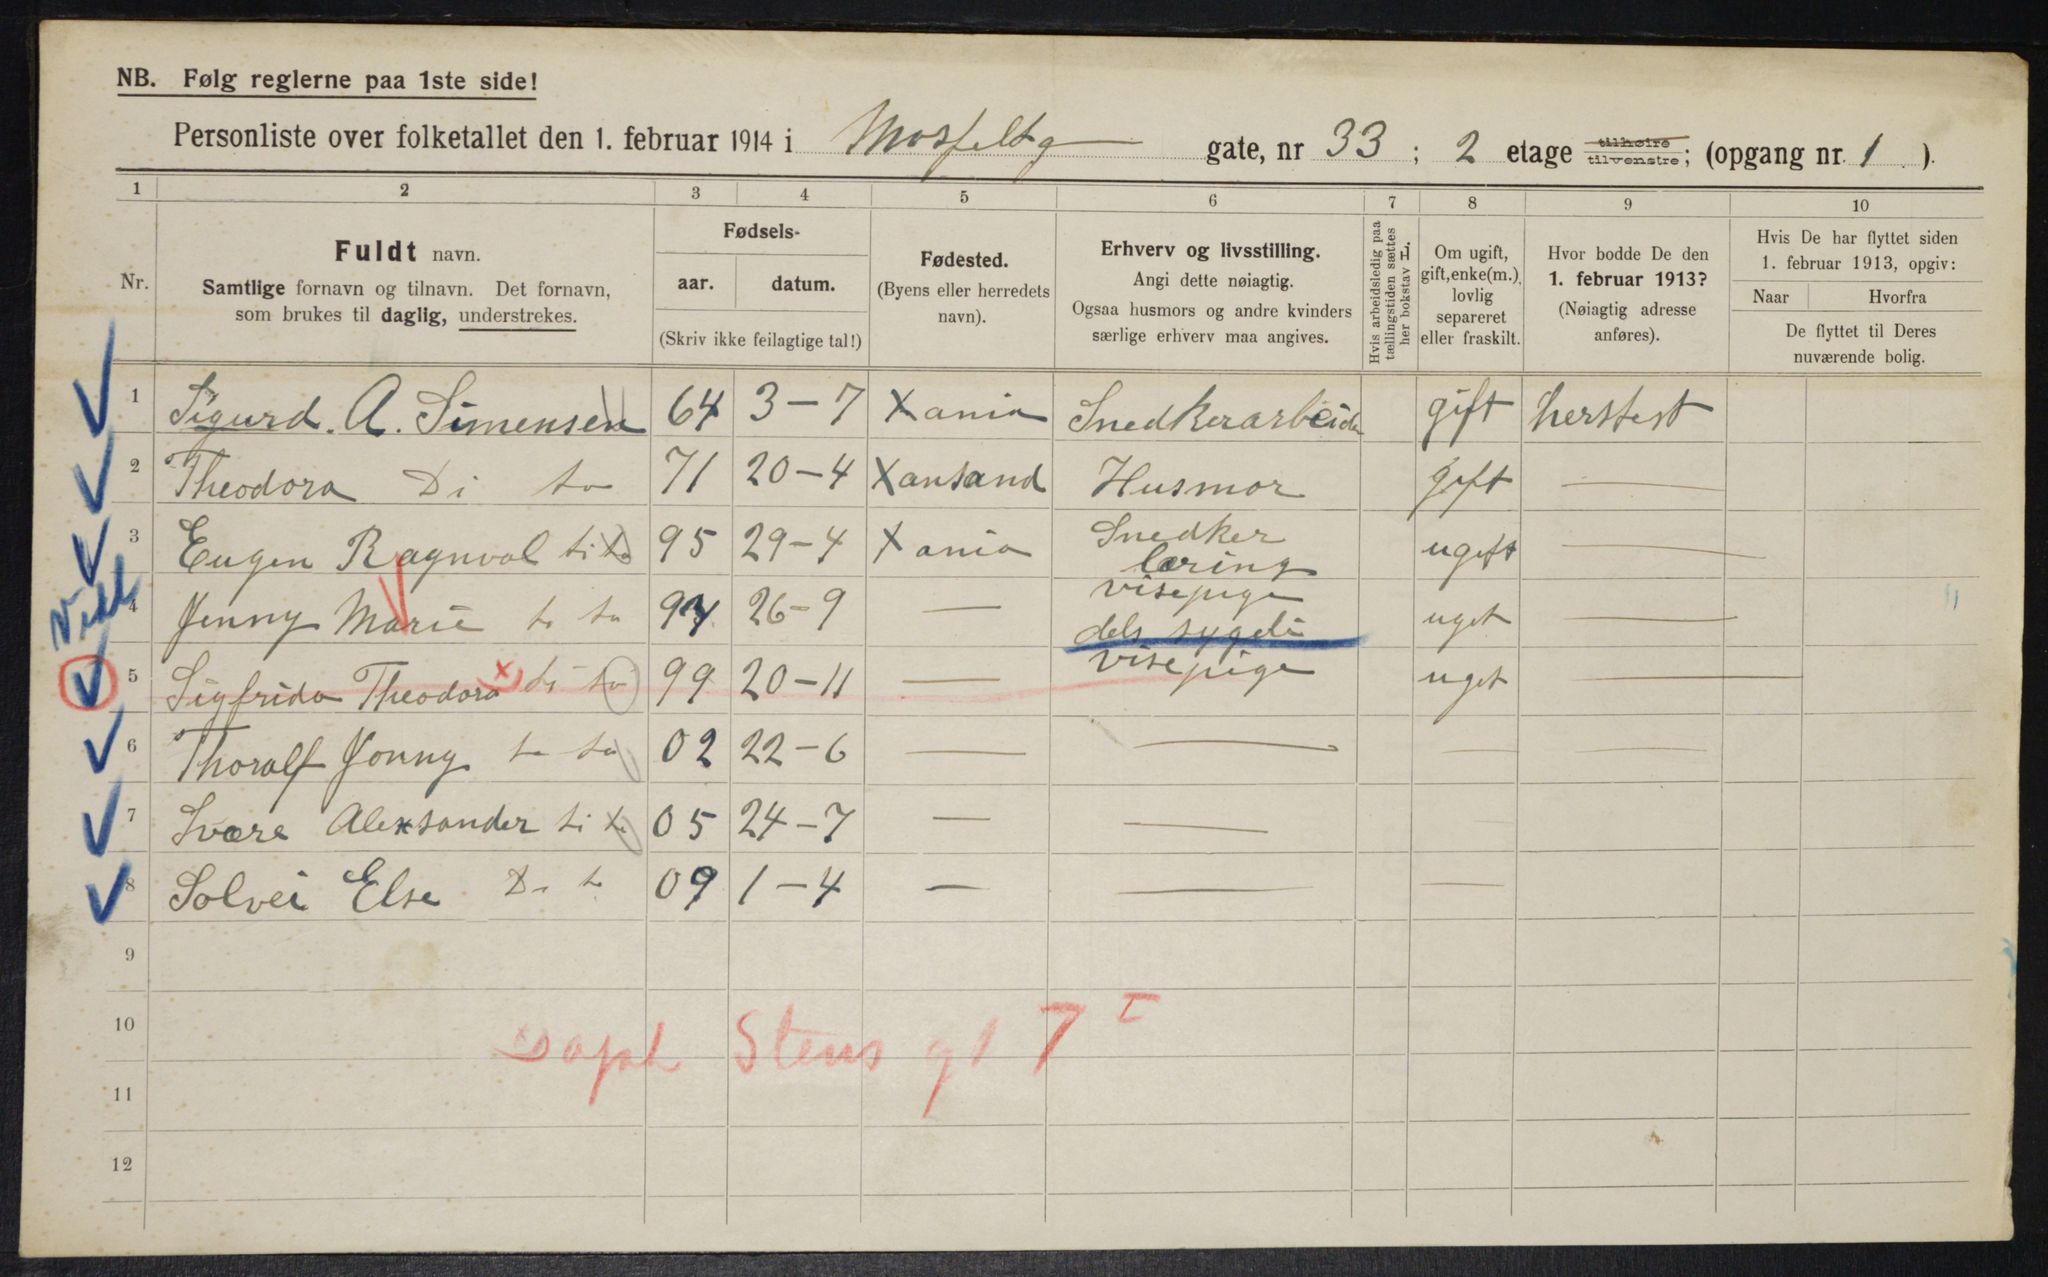 NB. Følg reglerne paa 1ste side!
Personliste over folketallet den 1. februar 1914 i Mosfeltg gate, nr 33 ; 2 etage tilhøire tilvenstre; (opgang nr. 1 ).
1 2 3 4 5 6 7 8 9 10
Nr.
Fuldt navn.
Samtlige fornavn og tilnavn. Det fornavn,
som brukes til daglig, understrekes.
Fødsels-
aar. datum.
(Skriv ikke feilagtige tal!)
Fødested.
(Byens eller herredets
navn).
Erhverv og livsstilling.
Angi dette nøiagtig.
Ogsaa husmors og andre kvinders
særlige erhverv maa angives.
Hvis arbeidsledig paa
tællingstiden sættes
her bokstav L.
Om ugift,
gift, enke(m.),
lovlig
separeret
eller fraskilt.
Hvor bodde De den
1. februar 1913?
(Nøiagtig adresse
anføres).
Hvis De har flyttet siden
1. februar 1913, opgiv:
Naar Hvorfra
De flyttet til Deres
nuværende bolig.
1 Sigurd. A. Simensen 64 3-7 Xania Snedkerarbeider gift herstest
2 Theodora Di to 71 20-4 Xansand Husmor gift —
3 Eugen Ragnval di to 95 29-4 Xania Snedker læring ugift —
4 Jenny Marie di to 26-9 — visepige dels syg uget —
5 Sigfrida Theodora x di to 99 20-11 — visepige uget —
6 Thoralf Jonny di to 02 22-6 — — — —
7 Svære Alexsander di to 05 24-7 — —
8 Solvei Else Di to 09 1-4 — — —
9
10
Stens gt 7 I
11
12